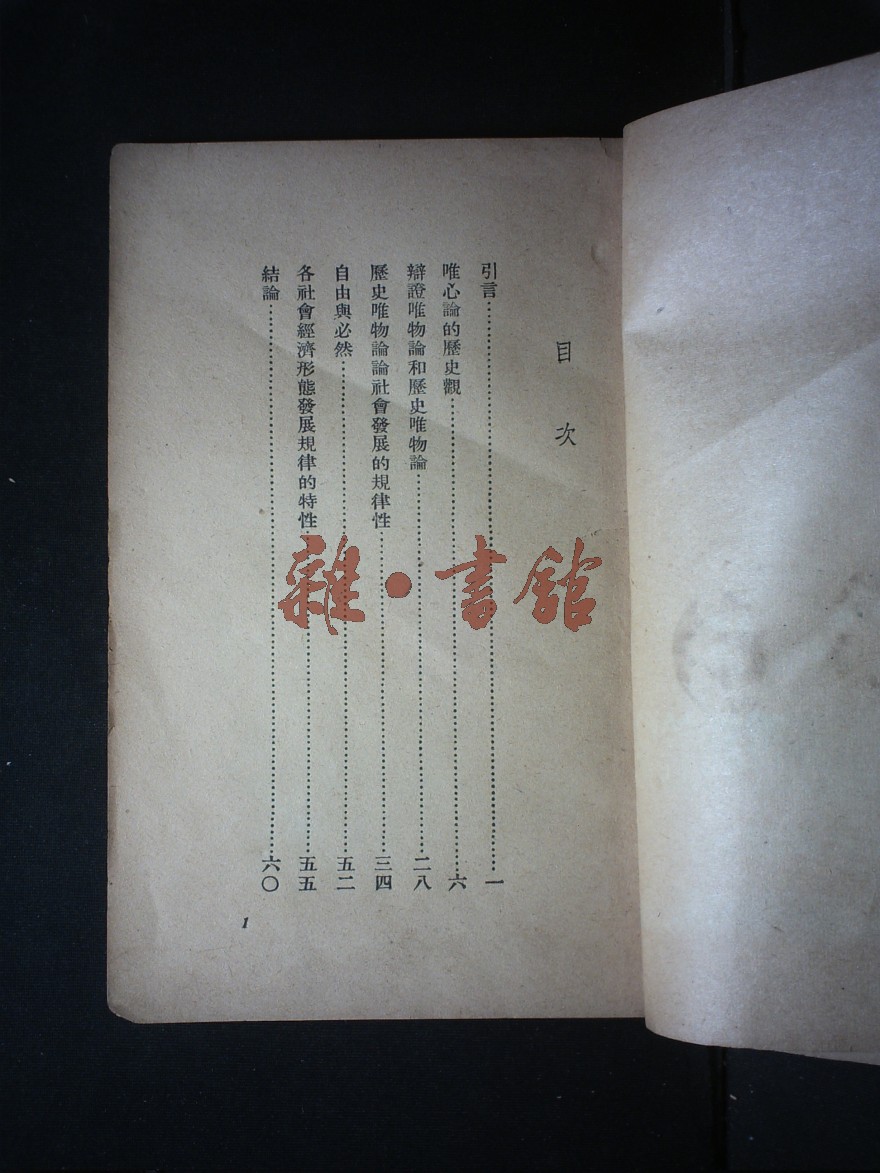 目次
引言……一
唯心論的歷史觀……六
辯證唯物論和歷史唯物論……二八
歷史唯物論論社會發展的規律性……三四
自由與必然……五二
各社會經濟形態發展規律的特性……五五
結論……六〇
1
雜·書館